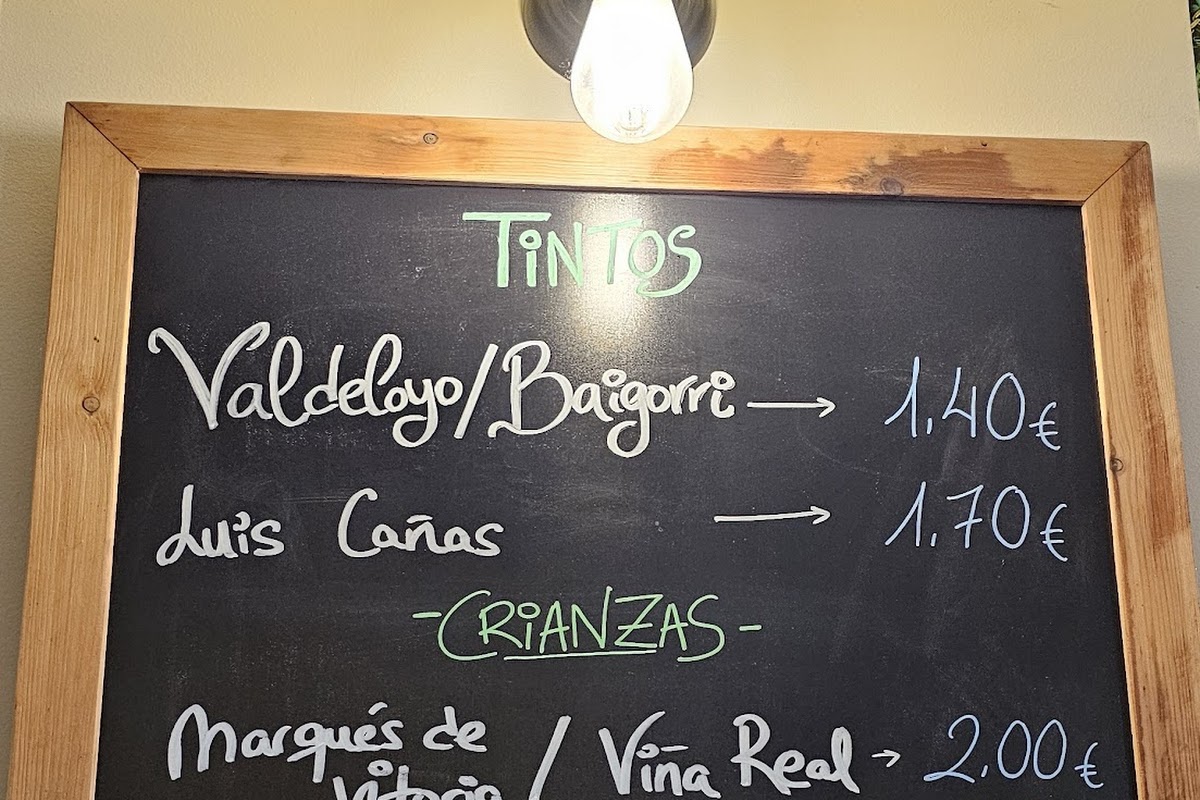 TiNTOS
Valdeloyo/Baigorri → 1.40€
Luis Cañas → 1.70€
-CRiANZAS-
Marqués de / Viña Real → 2.00€
Vitoria